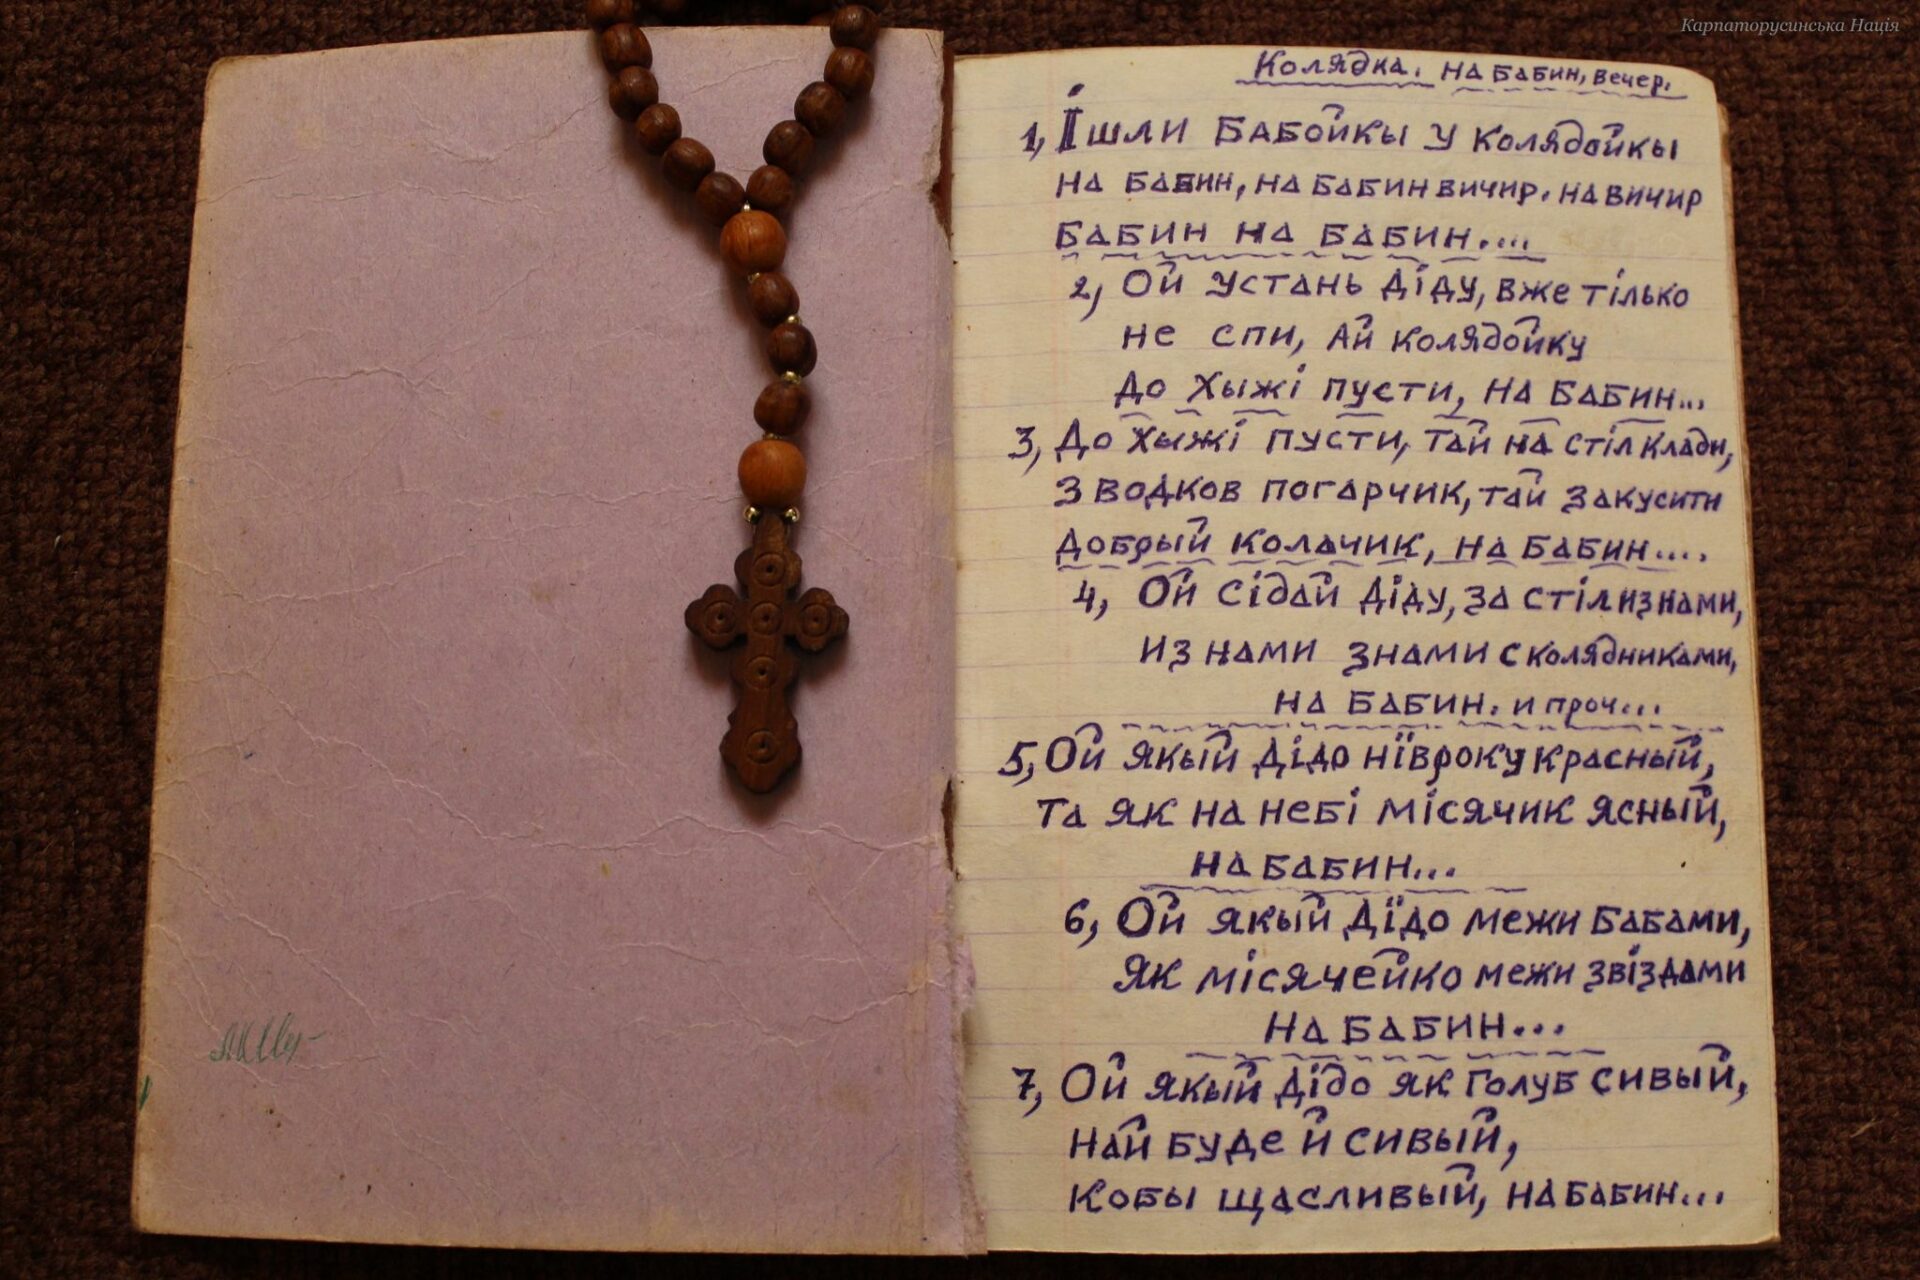 Карпаторусинська Нація
Колядка. на бабин, вечер.
1, Ішли бабойкы у колядойкы
на бабин, на бабин вичир. на вичир
бабин на бабин....
2, Ой устань діду, вже тілько
не спи, ай колядойку
до хыжі пусти, на бабин...
3, До хыжі пусти, тай на стіл клади,
з водков погарчик, тай закусити
добрый колачик, на бабин....
4, Ой сідай діду, за стіл из нами,
из нами знами с колядниками,
на бабин. и проч...
5, Ой якый дідо нївроку красный,
та як на небі місячик ясный,
на бабин...
6, Ой якый дїдо межи бабами,
як місячейко межи звіздами
на бабин...
7, Ой якый дідо як голуб сивый,
най буде й сивый,
кобы щасливый, на бабин...